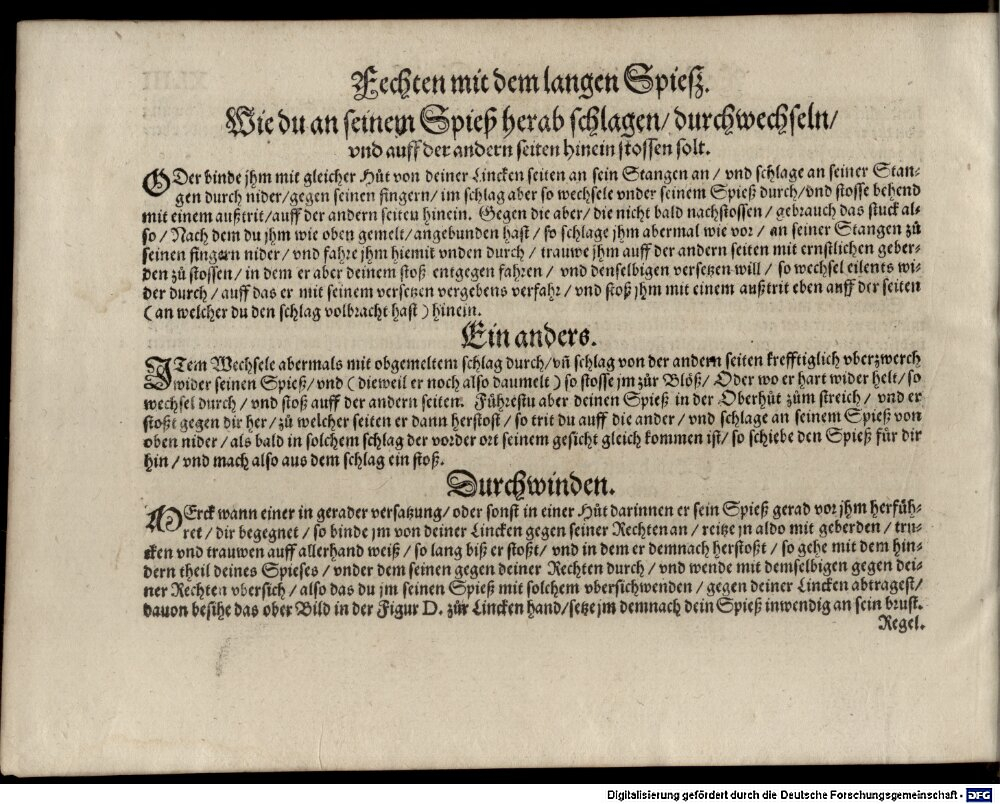 Fechten mit dem langen Spieß.
Wie du an seinem Spieß herab schlagen/ durchwechseln/
vnd auff der andern seiten hinein stossen solt.
ODer binde jhm mit gleicher Hůt von deiner Lincken seiten an sein Stangen an / vnd schlage an seiner Stan-
gen durch nider/gegen seinen fingern/ im schlag aber so wechsele vnder seinem Spieß durch/vnd stosse behend
mit einem außtrit/auff der andern seiten hinein. Gegen die aber/ die nicht bald nachstossen / gebrauch das stuck al-
so / Nach dem du jhm wie oben gemelt/ angebunden hast / so schlage jhm abermal wie vor / an seiner Stangen zů
seinen fingern nider / vnd fahre jhm hiemit vnden durch / trauwe jhm auff der andern seiten mit ernstlichen geber-
den zů stossen / in dem er aber deinem stoß entgegen fahren / vnd denselbigen versetzen will / so wechsel eilents wi-
der durch / auff das er mit seinem versetzen vergebens verfahr / vnd stoß jhm mit einem außtrit eben auff der seiten
( an welcher du den schlag volbracht hast ) hinein.
Ein anders.
ITem Wechsele abermals mit obgemeltem schlag durch/ vñ schlag von der andern seiten krefftiglich vberzwerch
wider seinen Spieß/ vnd ( dieweil er noch also daumelt ) so stosse jm zůr Blöß/ Oder wo er hart wider helt/ so
wechsel durch / vnd stoß auff der andern seiten. Führestu aber deinen Spieß in der Oberhůt zům streich / vnd er
stoßt gegen dir her/ zů welcher seiten er dann herstost / so trit du auff die ander / vnd schlage an seinem Spieß von
oben nider / als bald in solchem schlag der vorder ort seinem gesicht gleich kommen ist/ so schiebe den Spieß für dir
hin / vnd mach also aus dem schlag ein stoß.
Durchwinden.
MErck wann einer in gerader versatzung/ oder sonst in einer Hůt darinnen er sein Spieß gerad vor jhm herfüh-
ret / dir begegnet / so binde jm von deiner Lincken gegen seiner Rechten an / reitze jn aldo mit geberden / tru-
cken vnd trauwen auff allerhand weiß / so lang biß er stoßt/ vnd in dem er demnach herstoßt / so gehe mit dem hin-
dern theil deines Spieses / vnder dem seinen gegen deiner Rechten durch / vnd wende mit demselbigen gegen dei-
ner Rechten vbersich / also das du jm seinen Spieß mit solchem vbersichwenden / gegen deiner Lincken abtragest/
dauon besihe das ober Bild in der Figur D. zůr Lincken hand/ setze jm demnach dein Spieß inwendig an sein brust.
Regel.
Digitalisierung gefördert durch die Deutsche Forschungsgemeinschaft - DFG